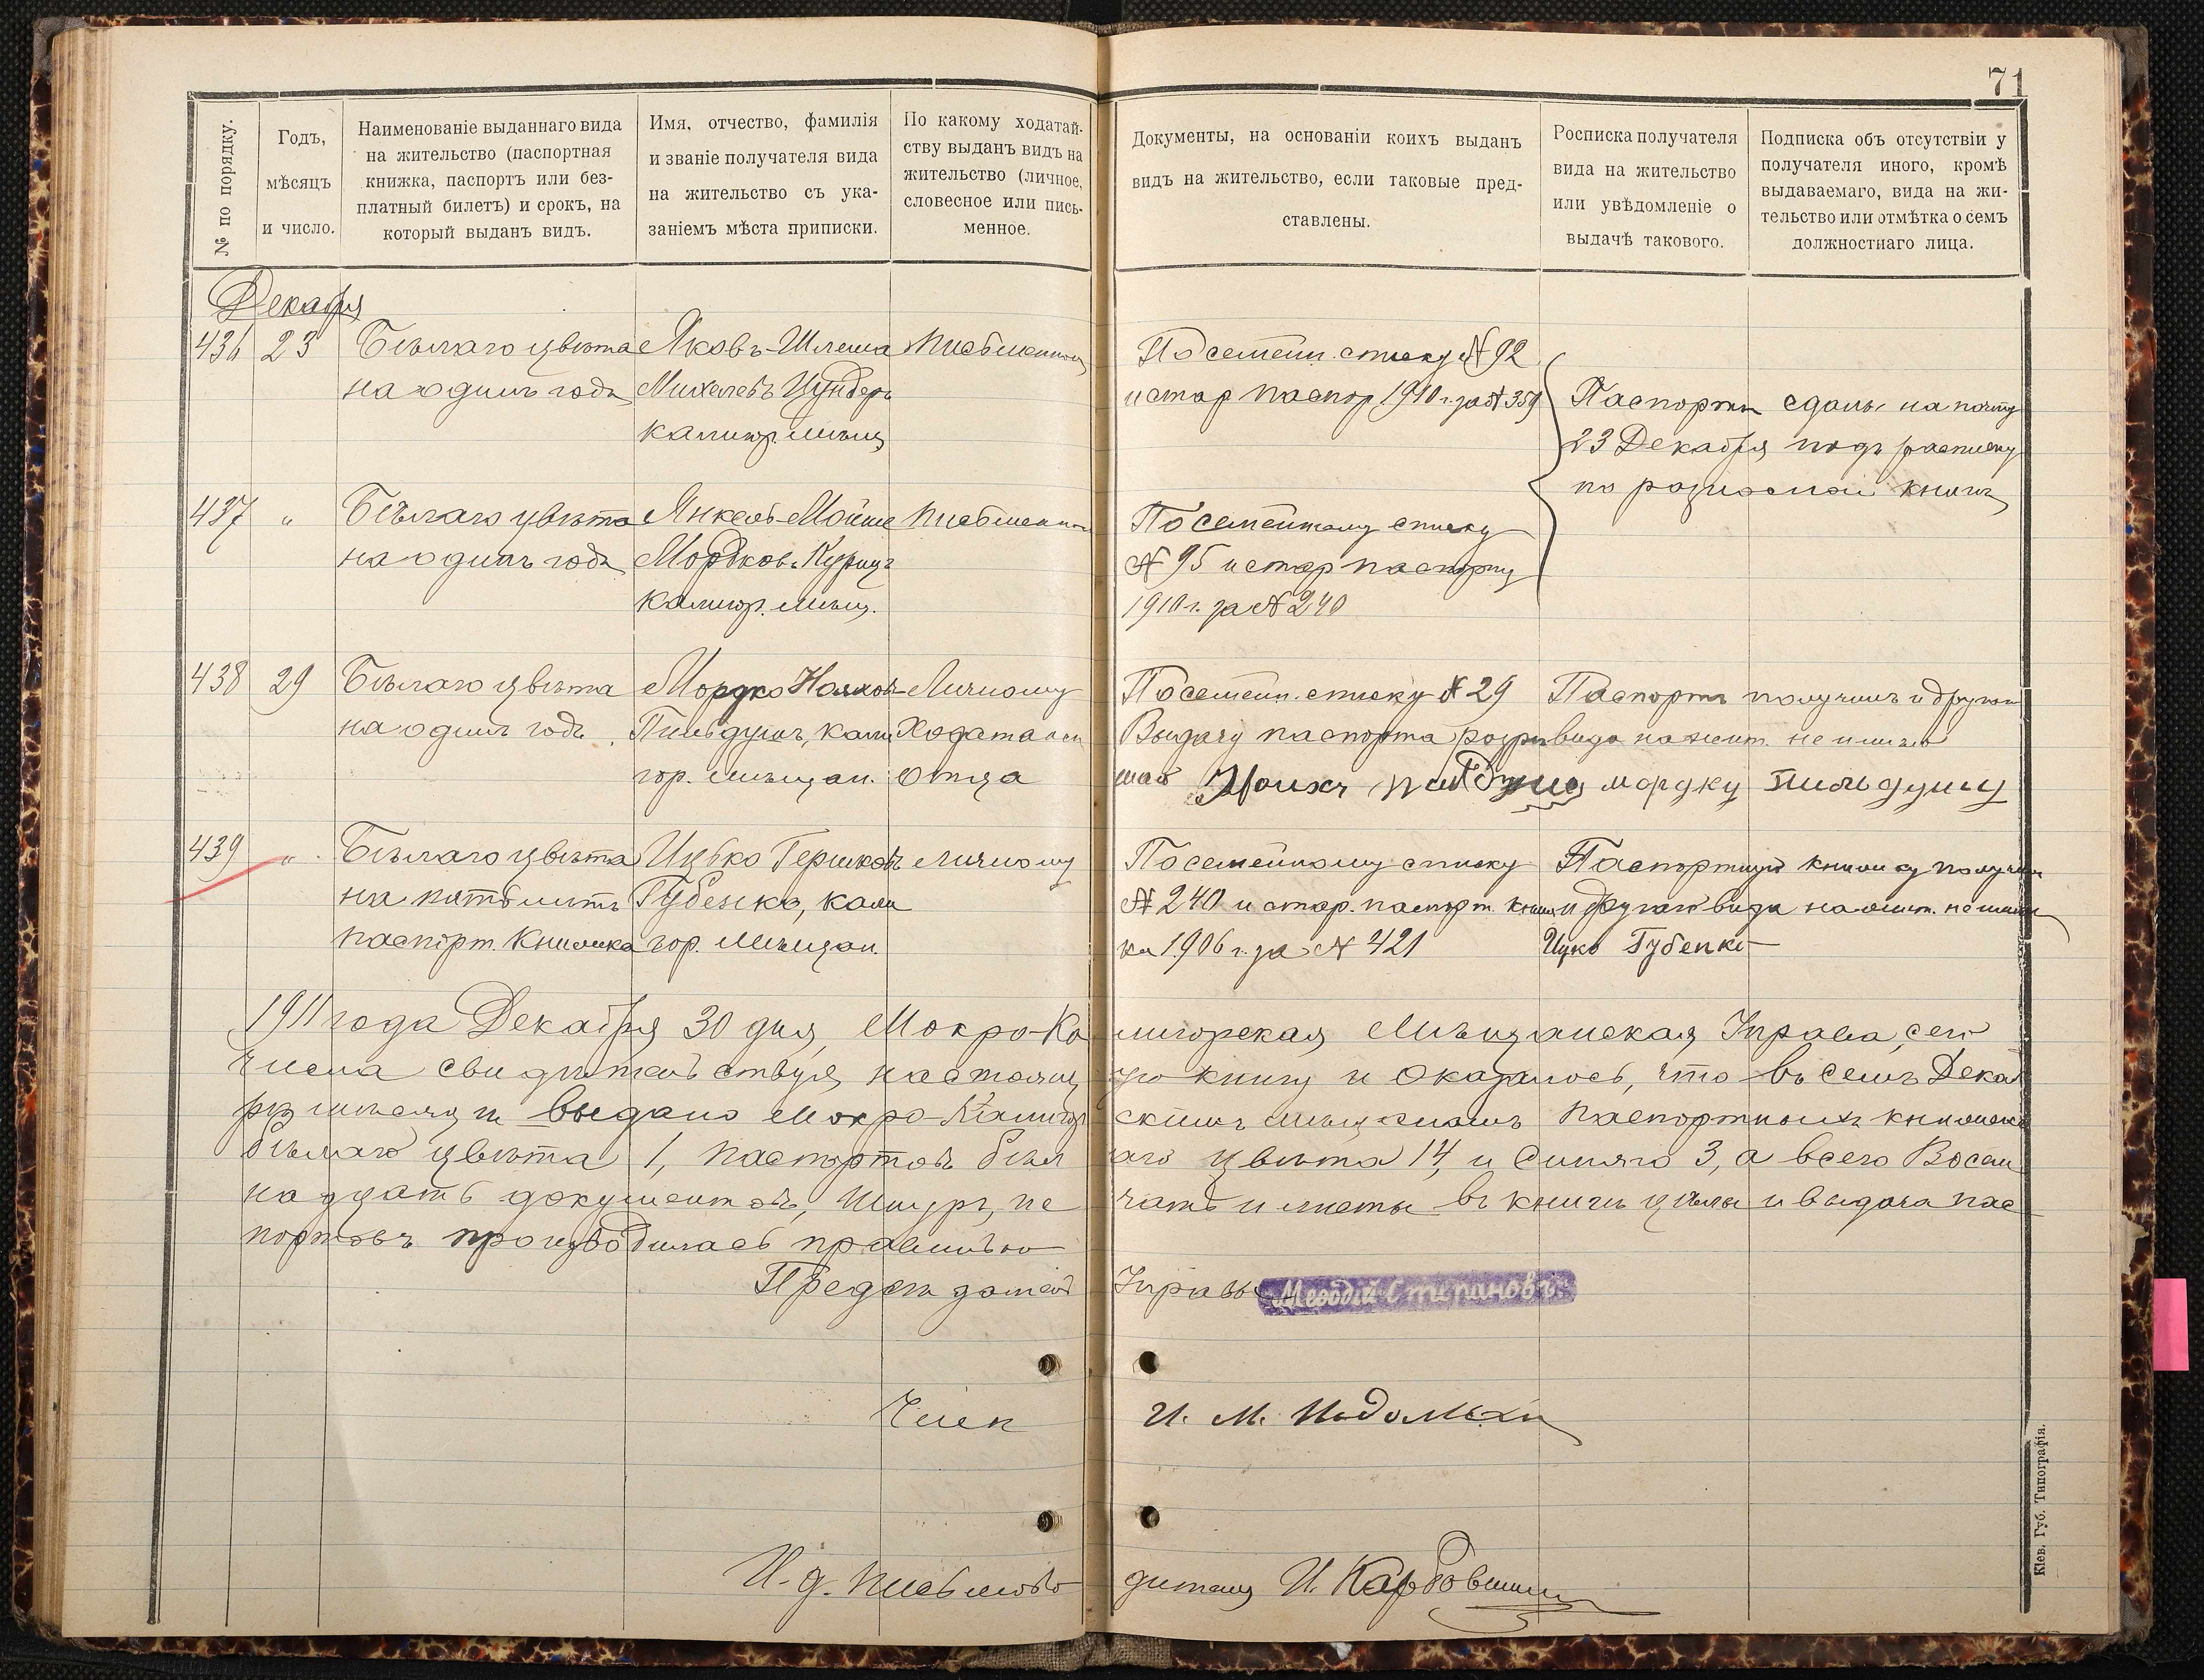 71
№ по порядку.
Годъ,
мѣсяцъ
и число.
Наименованіе выданнаго вида
на жительство (паспортная
книжка, паспортъ или без-
платный билетъ) и срокъ, на
который выданъ видъ.
Имя, отчество, фамилія
и званіе получателя вида
на жительство съ ука-
заніемъ мѣста приписки.
По какому ходатай-
ству выданъ видъ на
жительство (личное,
словесное или пись-
менное.
Документы, на основаніи коихъ выданъ
видъ на жительство, если таковые пред-
ставлены.
Росписка получателя
вида на жительство
или увѣдомленіе о
выдачѣ такового.
Подписка объ отсутствіи у
получателя иного, кромѣ
выдаваемаго, вида на жи-
тельство или отмѣтка о семъ
должностнаго лица.
Декабря
436 23 Бѣлаго цвѣта
на одинъ годъ
Яковъ-Шлема
Михелевъ Цундеръ
калигор. мѣщ.
письменному
По семейн. списку № 92
и стар паспор 1910 г. за № 359
Паспорты сданы на почту
23 Декабря подъ расписку
по разносной книгѣ
437 " Бѣлаго цвѣта
на одинъ годъ
Янкель-Мойше
Мордков. Курицъ
калигор. мѣщ.
письменному
По семейному списку
№ 95 и стар паспорту
1910 г. за № 240
438 29 Бѣлаго цвѣта
на одинъ годъ
Мордко Нояхов
Пильдушъ, кали
гор. мѣщан.
Личному
Ходатай
отца
По семейн. списку № 29
Выдачу паспорта разрѣ
шаю
Паспортъ получилъ и другого
вида на жит. не имѣю
мордку Пильдушъ
439 " Бѣлаго цвѣта
на пять лѣтъ
паспорт. книжка
Ицько Гершковъ
Губенко, кали
гор. мѣщан.
личному
По семейному списку
№ 240 и стар. паспорт. книж
ка 1906 г. за № 421
Паспортную книжку получилъ
и другого вида на жит. не имѣю
Ицко Губенко
1911 года Декабря 30 дня, Мокро-Ка лигорская Мѣщанская Управа, сего
числа свидѣтельствуя настоящ ую книгу и оказалось, что въ семъ Декаб
рѣ мѣсяцѣ выдано Мокро-Калигор скимъ мѣщанамъ паспортныхъ книжекъ
бѣлаго цвѣта 1, паспортовъ бѣл аго цвѣта 14, и синяго 3, а всего Восем
надцать документовъ, Шнуръ, пе чать и листы въ книгѣ цѣлы и выдача пас
портовъ производилась правильно
Предсѣдатель Управы Меѳодій Степановъ
Член И. М.
И. д. письмово дителя И.
Кіев. Губ. Типографія.